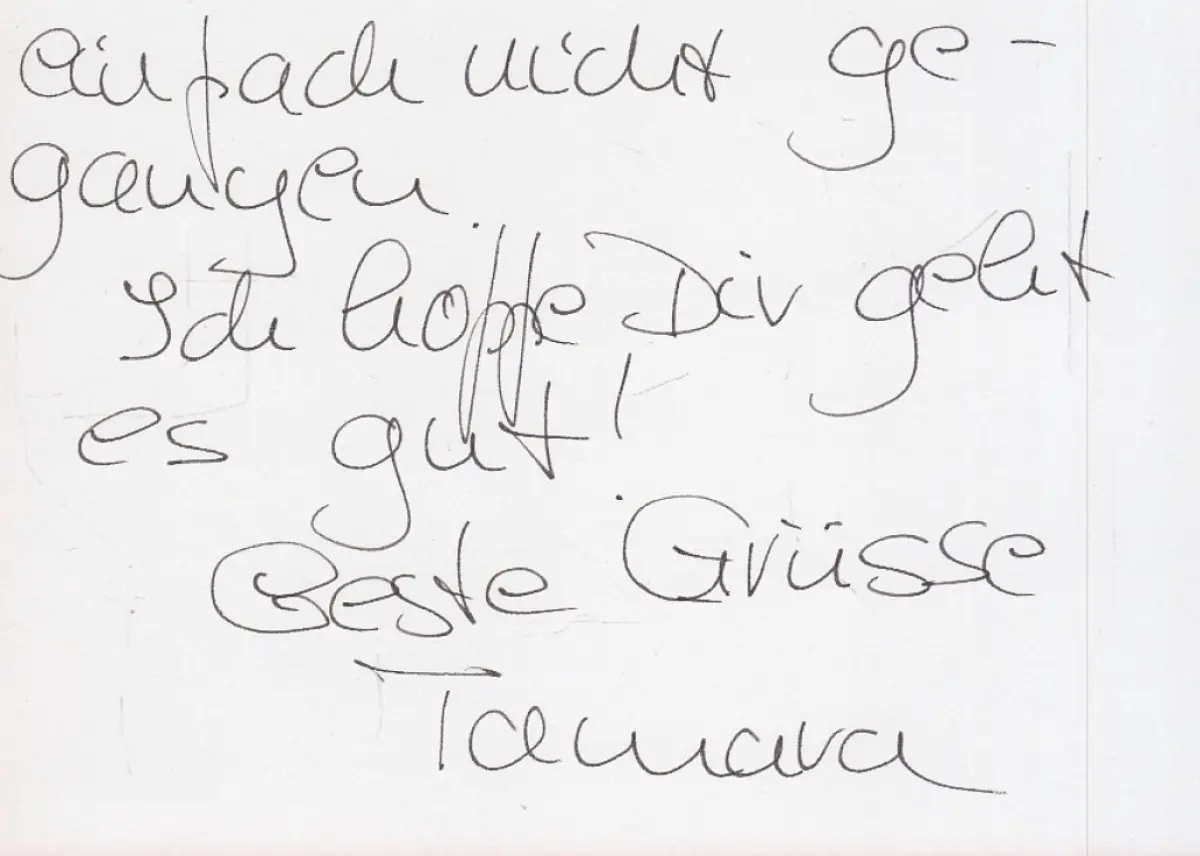 einfach nicht ge-
gangen.
Ich hoffe Dir geht
es gut!
Beste Grüsse
Tamara